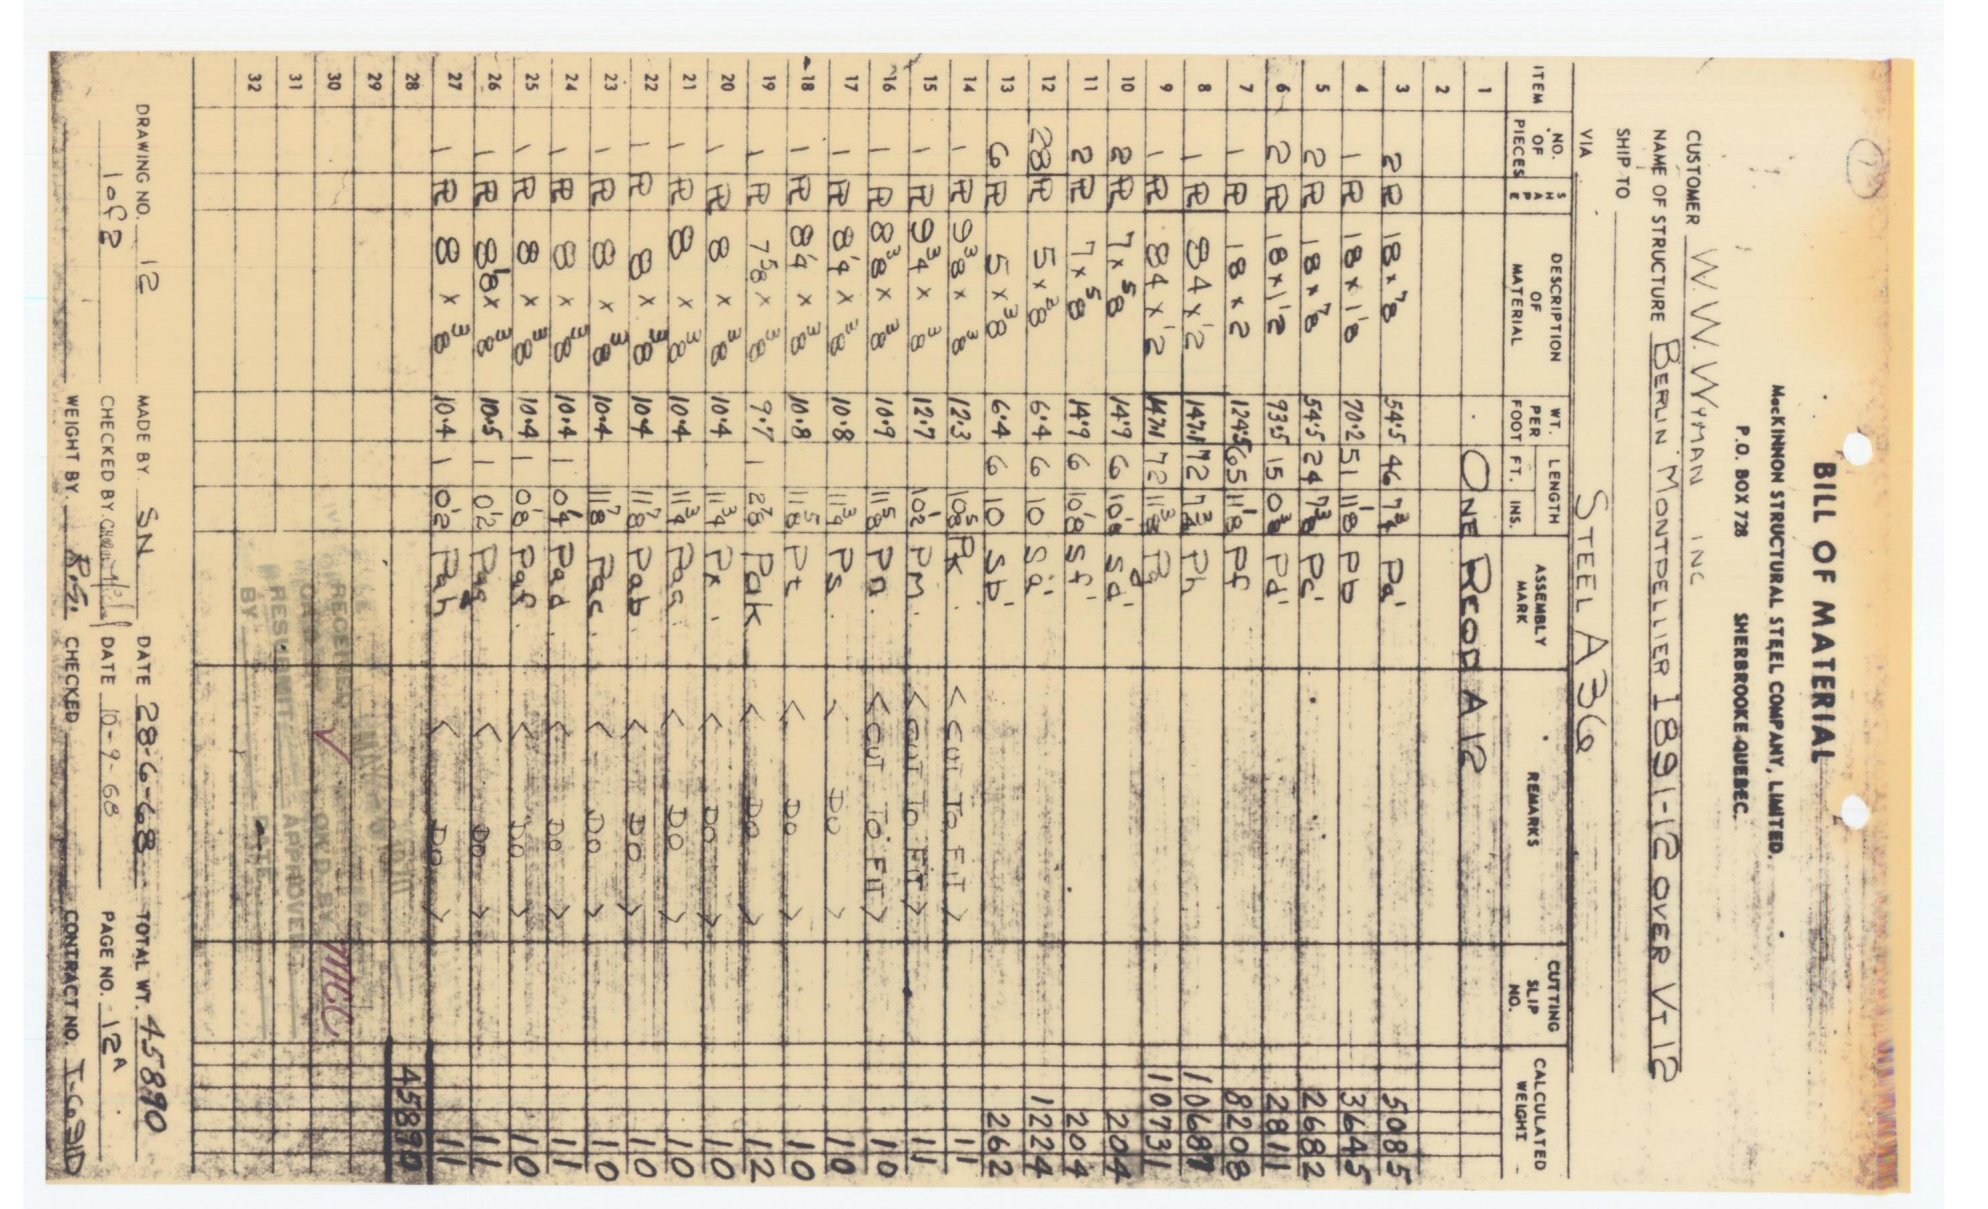 BILL OF MATERIAL
MacKINNON STRUCTURAL STEEL COMPANY, LIMITED.
P.O. BOX 728 SHERBROOKE QUEBEC.
CUSTOMER W. W. WYMAN INC
NAME OF STRUCTURE BERLIN MONTPELLIER 1891-12 OVER VT 12
SHIP TO
VIA STEEL A36
ITEM NO. OF PIECES SHAPE DESCRIPTION OF MATERIAL WT. PER FOOT LENGTH FT. INS. ASSEMBLY MARK REMARKS CUTTING SLIP NO. CALCULATED WEIGHT
1 ONE REQD A12
2
3 2 PL 18 x 7/8 54.5 46 7 3/4 Pa' 5085
4 1 PL 18 x 1 1/8 70.2 51 11 1/8 Pb 3645
5 2 PL 18 x 7/8 54.5 24 7 3/8 Pc' 2682
6 2 PL 18 x 1 1/2 93.5 15 0 3/8 Pd' 2811
7 1 PL 18 x 2 124.5 65 11 1/8 Pf 8208
8 1 PL 84 x 1/2 147.1 72 7 3/4 Ph 10687
9 1 PL 84 x 1/2 147.1 72 11 3/8 Pg 10731
10 2 PL 7 x 5/8 14.9 6 10 1/8 Sd' 204
11 2 PL 7 x 5/8 14.9 6 10 1/8 Sf' 204
12 28 PL 5 x 3/8 6.4 6 10 Sa' 1224
13 6 PL 5 x 3/8 6.4 6 10 Sb' 262
14 1 PL 9 3/8 x 3/8 12.3 10 5/8 Pk < CUT TO FIT > 11
15 1 PL 9 3/4 x 3/8 12.7 10 1/2 Pm. < CUT TO FIT > 11
16 1 PL 8 3/8 x 3/8 10.9 11 5/8 Pn. < CUT TO FIT > 10
17 1 PL 8 1/4 x 3/8 10.8 11 3/4 Ps DO > 10
18 1 PL 8 1/4 x 3/8 10.8 11 5/8 Pt < DO > 10
19 1 PL 7 5/8 x 3/8 9.7 1 2 7/8 Pak < DO > 12
20 1 PL 8 x 3/8 10.4 11 3/4 Px. < DO > 10
21 1 PL 8 x 3/8 10.4 11 3/4 Paa < DO > 10
22 1 PL 8 x 3/8 10.4 11 7/8 Pab < DO > 10
23 1 PL 8 x 3/8 10.4 11 7/8 Pac. < DO > 10
24 1 PL 8 x 3/8 10.4 1 0 1/4 Pad < DO > 11
25 1 PL 8 x 3/8 10.4 1 0 1/8 Paf < DO > 10
26 1 PL 8 1/8 x 3/8 10.5 1 0 1/2 Pag < DO > 11
27 1 PL 8 x 3/8 10.4 1 0 1/2 Pah < DO > 11
28 45890
29
30 MCC
31
32
RESUBMIT APPROVED
BY DATE
DRAWING NO. 12 MADE BY. SN DATE 28-6-68 TOTAL WT. 45890
1 of 2 CHECKED BY DATE 10-9-68 PAGE NO. 12A
WEIGHT BY. CHECKED CONTRACT NO.